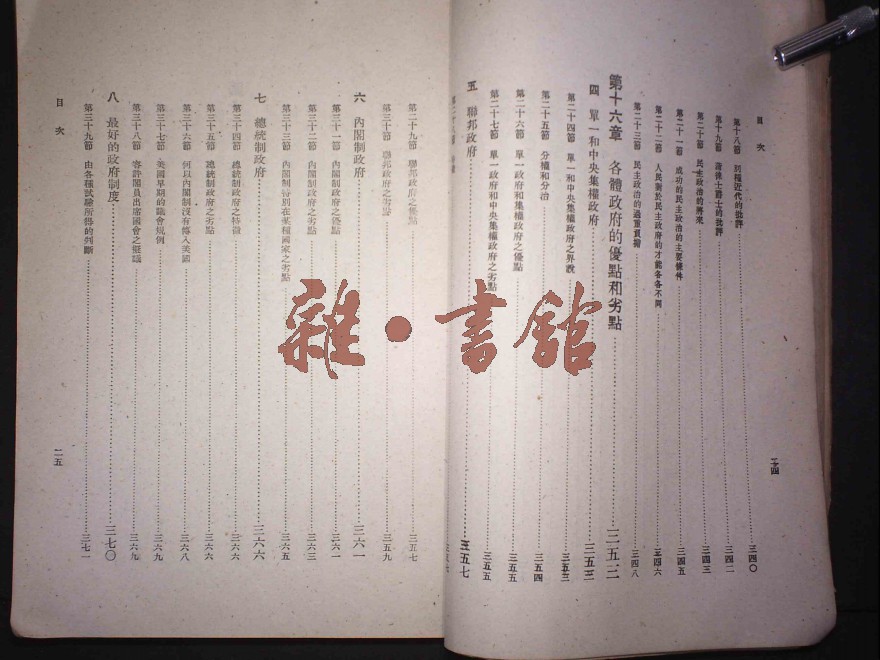 目次
第十八節 別種近代的批評 三四〇
第十九節 蒲徠士爵士的批評 三四二
第二十節 民主政治的將來 三四三
第二十一節 成功的民主政治的主要條件 三四五
第二十二節 人民對於民主政府的才能各各不同 三四六
第二十三節 民主政治的過重負擔 三四八
第十六章 各體政府的優點和劣點 三五三
四 單一和中央集權政府 三五三
第二十四節 單一和中央集權政府之界說 三五三
第二十五節 分權和分治 三五四
第二十六節 單一政府和集權政府之優點 三五五
第二十七節 單一政府和中央集權政府之劣點 三五五
五 聯邦政府 三五七
二四
第二十九節 聯邦政府之優點 三五七
第三十節 聯邦政府之劣點 三五九
六 內閣制政府 三六一
第三十一節 內閣制政府之優點 三六一
第三十二節 內閣制政府之劣點 三六三
第三十三節 內閣制特別在某種國家之劣點 三六五
七 總統制政府 三六六
第三十四節 總統制政府之特徵 三六六
第三十五節 總統制政府之劣點 三六六
第三十六節 何以內閣制沒有傳入美國 三六八
第三十七節 美國早期的議會規例 三六九
第三十八節 容許閣員出席國會之建議 三六九
八 最好的政府制度 三七〇
第三十九節 由各種試驗所得的判斷 三七一
目次
二五
雜·書館